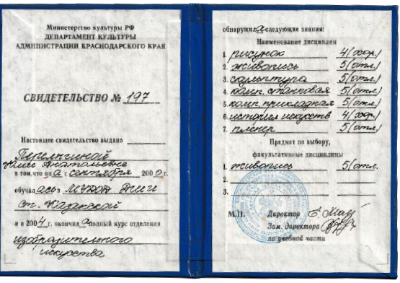 Министерство культуры РФ
ДЕПАРТАМЕНТ КУЛЬТУРЫ
АДМИНИСТРАЦИИ КРАСНОДАРСКОГО КРАЯ
СВИДЕТЕЛЬСТВО № 197
Настоящее свидетельство выдано
Анатольевне
в том, что он а сентября 2000 г.
обучал ась
ст. Казанской
и в 2004 г. окончил а полный курс отделения
изобразительного
искусства
обнаружил а следующие знания:
Наименование дисциплин
1. рисунок 4(хор.)
2. живопись 5(отл.)
3. скульптура 5(отл.)
4. комп. станковая 5(отл.)
5. комп. прикладная 5(отл.)
6. история искусств 4(хор.)
7. пленер 5(отл.)
Предмет по выбору,
факультативные дисциплины
1. живопись 5(отл.)
2.
3.
М.П. Директор
Зам. директора
по учебной части